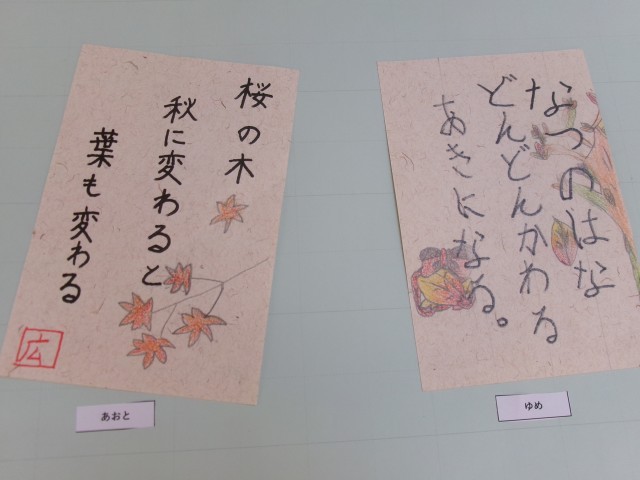 桜の木
秋に変わると
葉も変わる
広
あおと
なつのはな
どんどんかわる
あきになる。
ゆめ